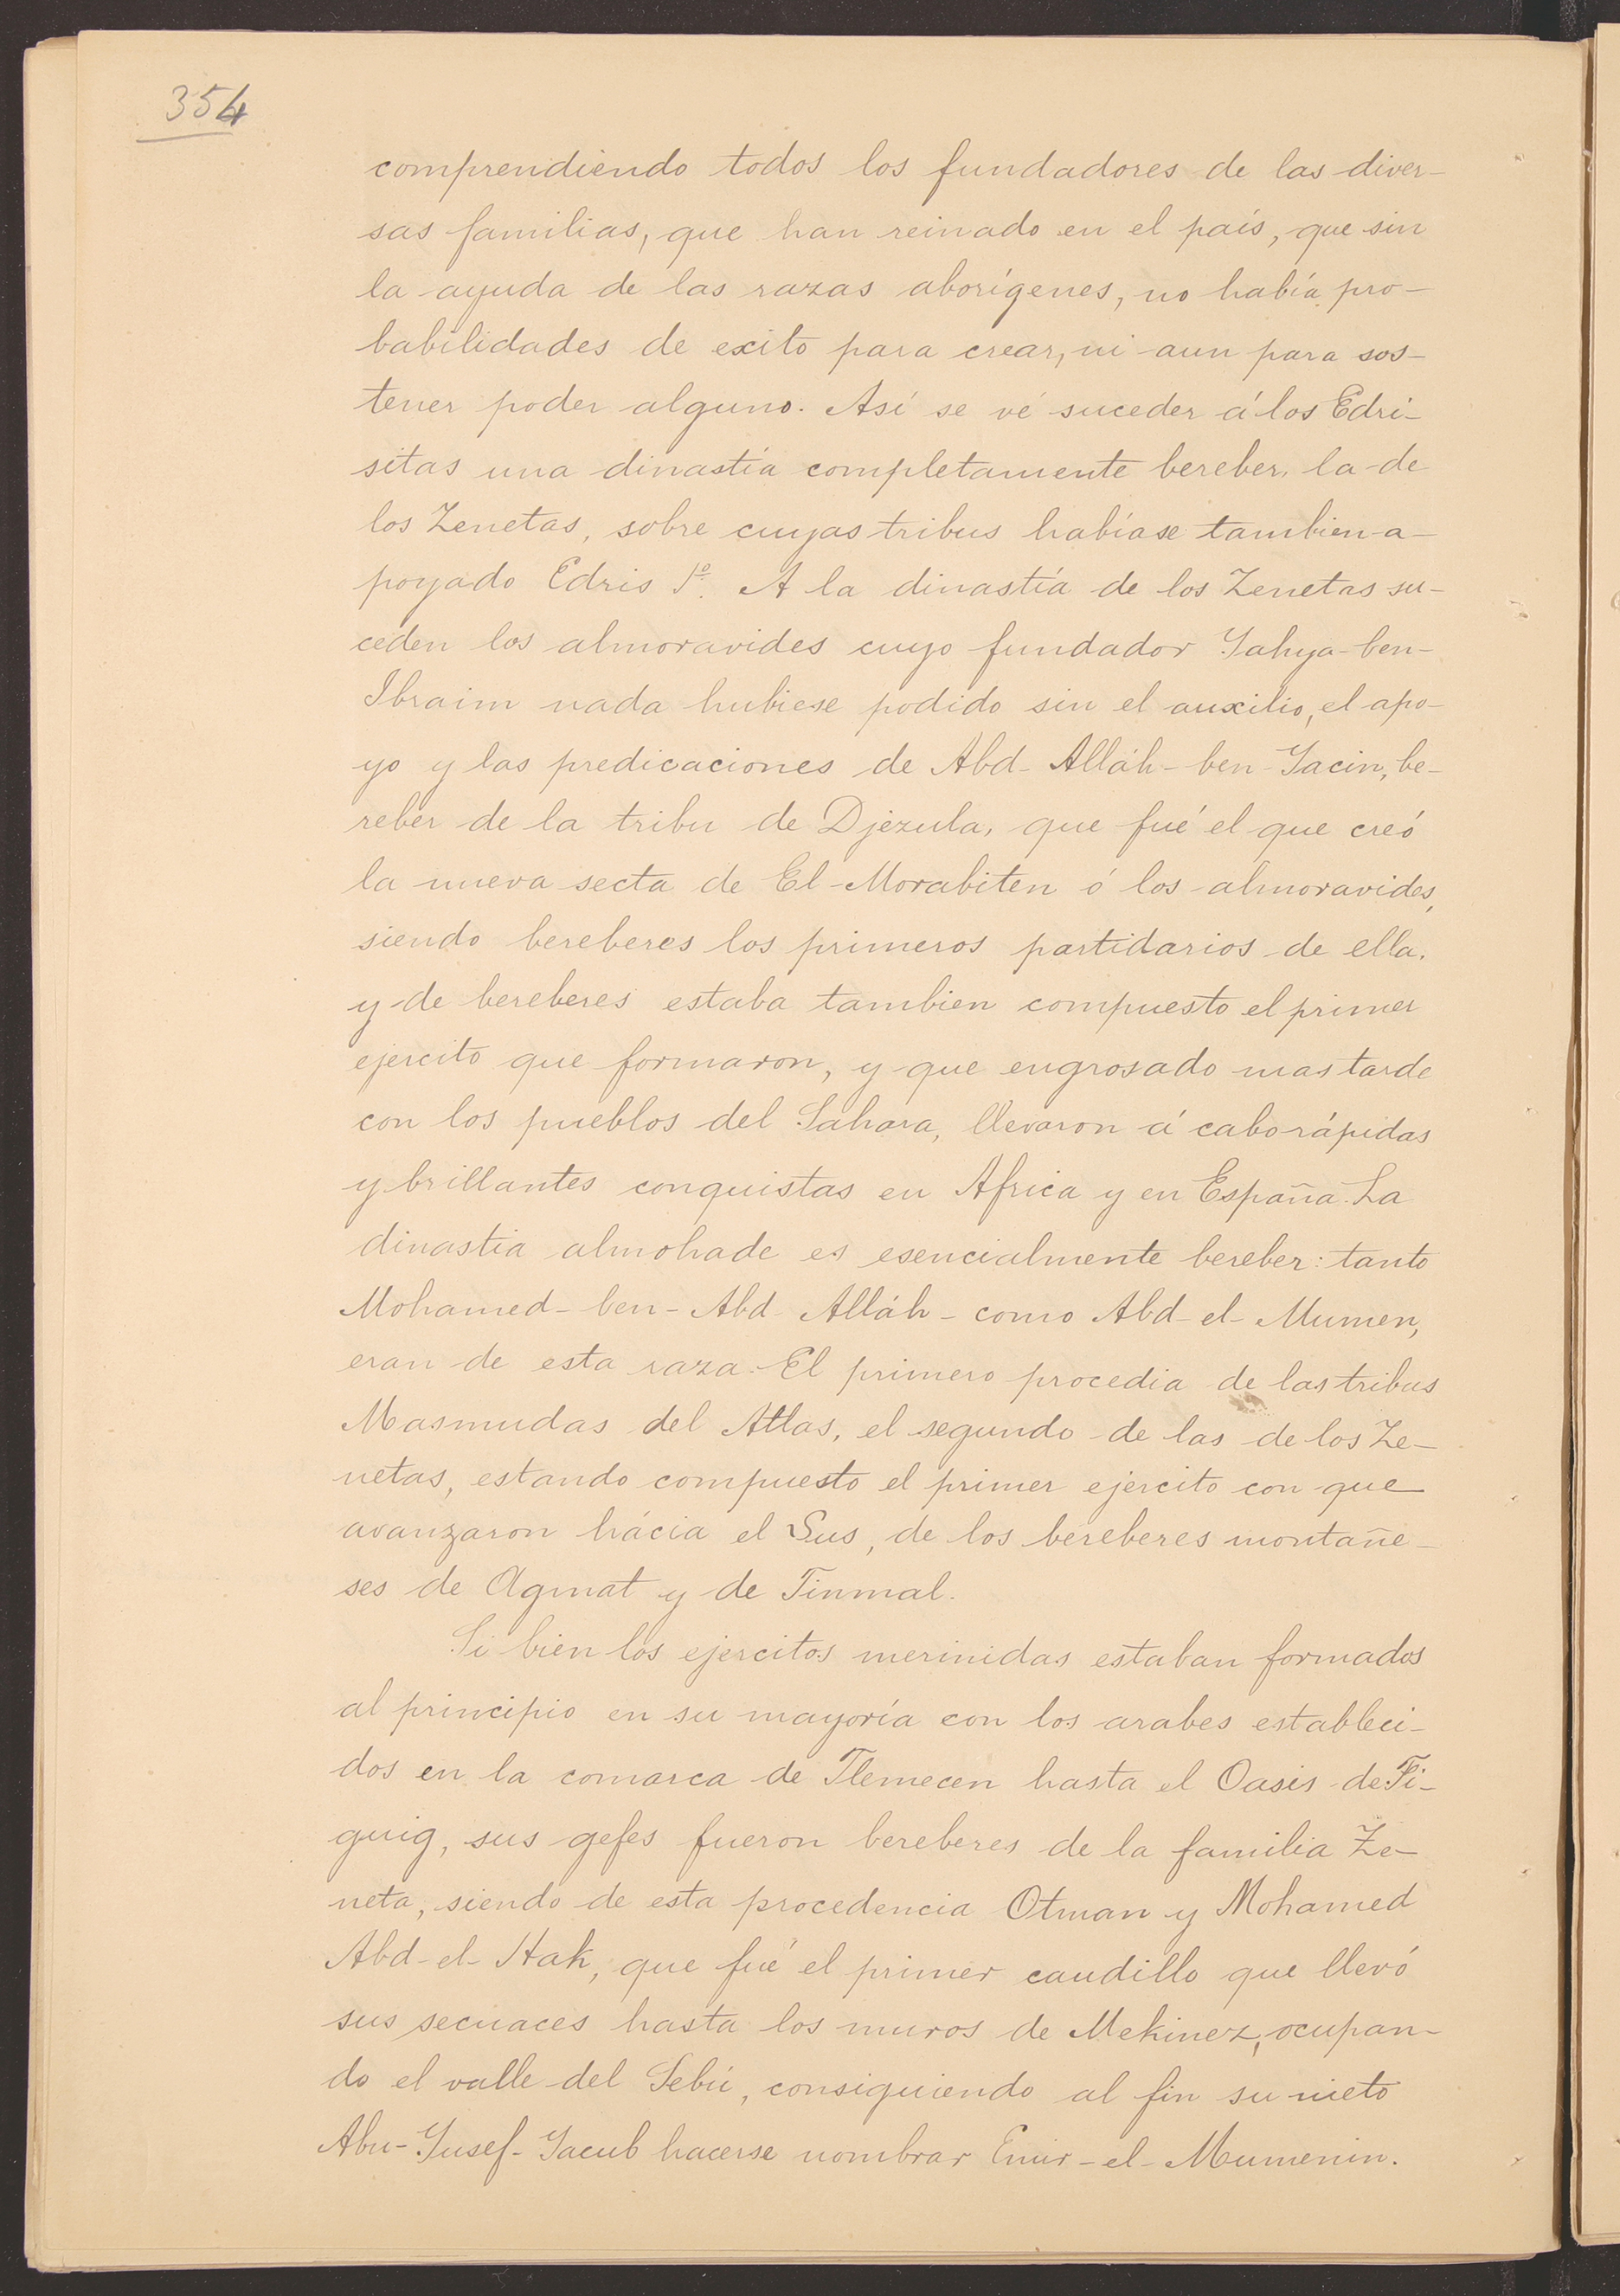 354
comprendiendo todos los fundadores de las diver-
sas familias, que han reinado en el país, que sin
la ayuda de las razas aborígenes, no había pro-
babilidades de exito para crear, ni aun para sos-
tener poder alguno. Así se vé suceder á los Edri-
sitas una dinastía completamente bereber, la de
los Zenetas, sobre cuyas tribus habíase tambien a-
poyado Edris 1º. A la dinastía de los Zenetas su-
ceden los almoravides cuyo fundador Yahya-ben-
Ibraim nada hubiese podido sin el auxilio, el apo-
yo y las predicaciones de Abd-Alláh-ben-Yacin, be-
reber de la tribu de Djezula, que fué el que creó
la nueva secta de El-Morabiten ó los almoravides,
siendo bereberes los primeros partidarios de ella,
y de bereberes estaba tambien compuesto el primer
ejercito que formaron, y que engrosado mas tarde
con los pueblos del Sahara, llevaron á cabo rápidas
y brillantes conquistas en Africa y en España. La
dinastia almohade es esencialmente bereber: tanto
Mohamed-ben-Abd-Alláh-como Abd-el-Mumen,
eran de esta raza. El primero procedia de las tribus
Masmudas del Atlas, el segundo de las de los Ze-
netas, estando compuesto el primer ejercito con que
avanzaron hácia el Sus, de los bereberes montañe-
ses de Agmat y de Tinmal.
Si bien los ejercitos merinidas estaban formados
al principio en su mayoría con los arabes estableci-
dos en la comarca de Tlemecen hasta el Oasis de Fi-
guig, sus gefes fueron bereberes de la familia Ze-
neta, siendo de esta procedencia Otman y Mohamed
Abd-el-Hak, que fué el primer caudillo que llevó
sus secuaces hasta los muros de Mekinez, ocupan-
do el valle del Sebú, consiguiendo al fin su nieto
Abu-Yusef-Yacub hacerse nombrar Emir-el-Mumenin.